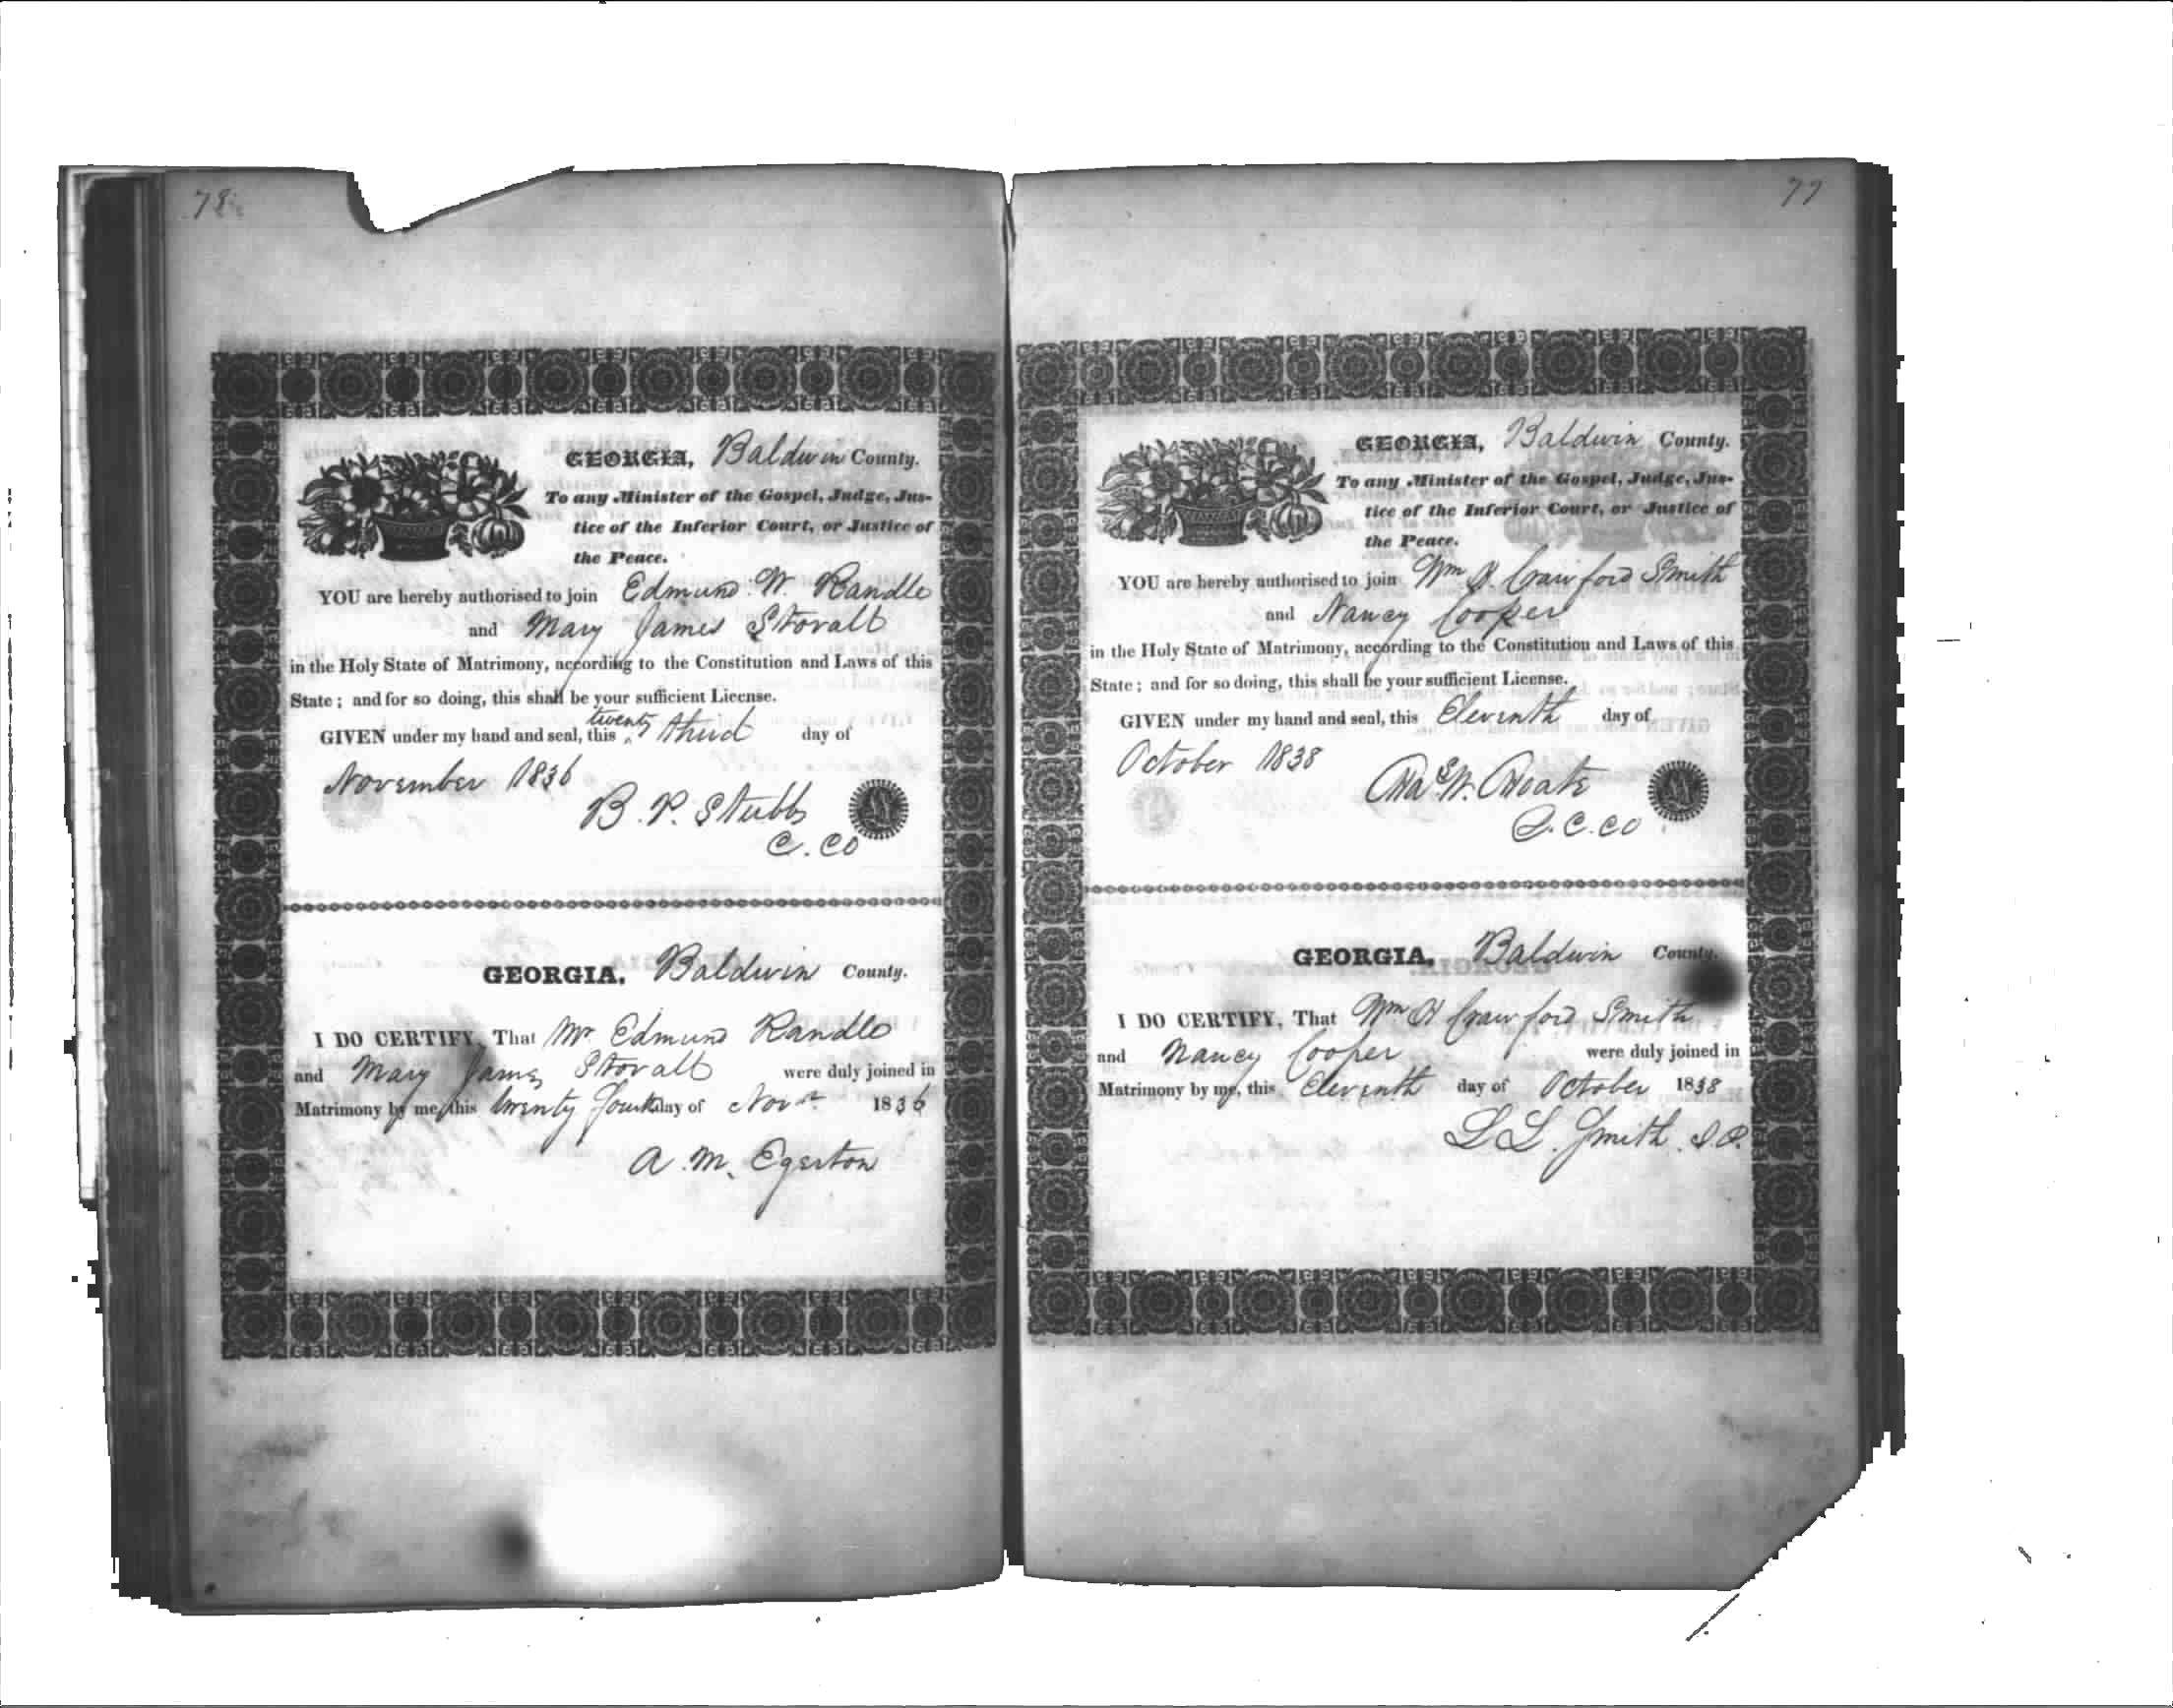 78
GEORGIA, Baldwin County.
To any Minister of the Gospel, Judge, Jus-
tice of the Inferior Court, or Justice of
the Peace.
YOU are hereby authorised to join Edmund W. Randle
and Mary James Stovall
in the Holy State of Matrimony, according to the Constitution and Laws of this
State; and for so doing, this shall be your sufficient License.
GIVEN under my hand and seal, this twenty third day of
November 1836
B. P. Stubbs
C. CO
GEORGIA, Baldwin County.
I DO CERTIFY, That Mr Edmund Randle
and Mary James Stovall were duly joined in
Matrimony by me, this twenty fourth day of Novr 1836
A. M. Egerton
77
GEORGIA, Baldwin County.
To any Minister of the Gospel, Judge, Jus-
tice of the Inferior Court, or Justice of
the Peace.
YOU are hereby authorised to join Wm H. Crawford Smith
and Nancy Cooper
in the Holy State of Matrimony, according to the Constitution and Laws of this
State; and for so doing, this shall be your sufficient License.
GIVEN under my hand and seal, this Eleventh day of
October 1838
Chas W. Choate
D. C. CO
GEORGIA, Baldwin County.
I DO CERTIFY, That Wm H Crawford Smith
and Nancy Cooper were duly joined in
Matrimony by me, this Eleventh day of October 1838
L L. Smith. J.P.